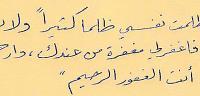 ظلمت نفسي ظلما كثيراً ولا
فاغفرلي مغفرة من عندك ، وار
أنت الغفور الرحيم "